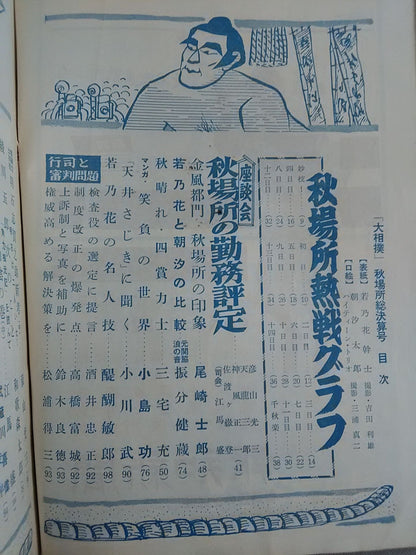 「大相撲」秋場所総決算号 目次
【表紙】若乃花幹士 撮影・吉田利雄
【口絵】朝汐太郎 撮影・三浦真二
ハイティーン・トリオ
秋場所熱戦グラフ
初日
二日目 12
三日目 14
妙技! 9
四日目 16
五日目 18
六日目 20
七日目 22
八日目 24
九日目
十日目 28
十一日目 30
十二日目 32
十三日目 34
十四日目 36
千秋楽 38
座談会
秋場所の勤務評定
彦山光三
天竜三郎
神風正一
佐渡ヶ嶽
(司会) 江馬盛
(41)
金風都門・秋場所の印象 尾崎士郎 (48)
若乃花と朝汐の比較 元関脇浪の音 振分健蔵 (74)
秋晴れ・四賞力士 三宅充 (50)
マンガ 笑負の世界 小島功 (76)
「天井さじき」に聞く 小川武 (90)
若乃花の名人技 醍醐敏郎 (98)
行司と審判問題
検査役の選定に提言 酒井忠正 (92)
制度改正の爆発点 高橋富城 (92)
上訴制と写真を補助に 鈴木良徳 (93)
権威高める解決策を 松浦得三 (93)